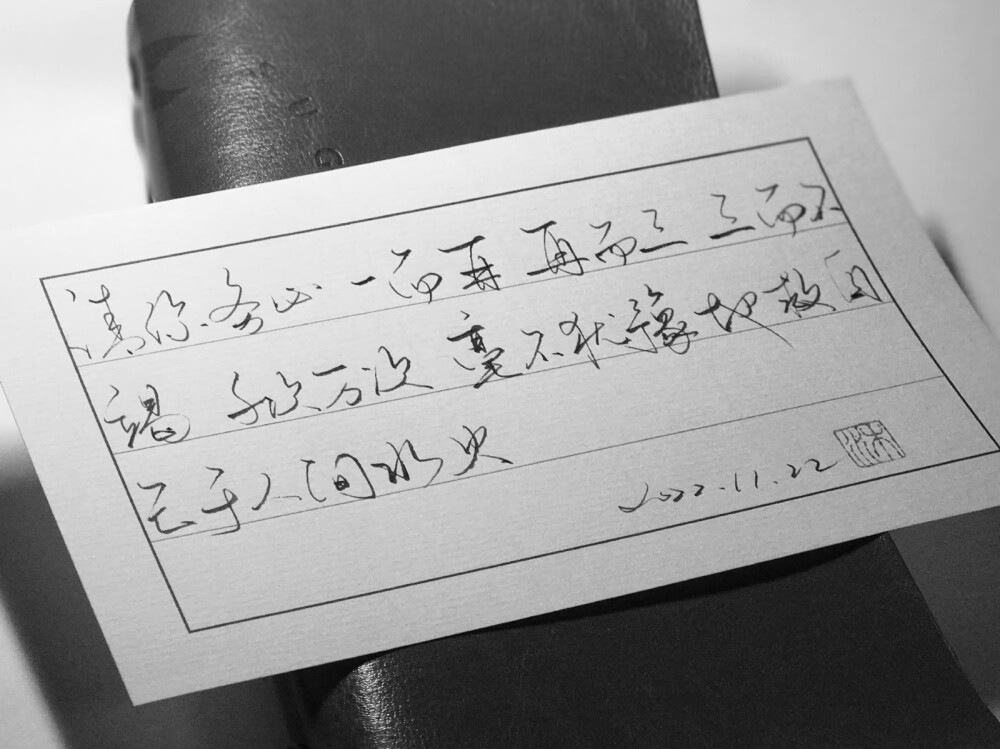 请你务必 一而再 再而三 三而不
竭 千次万次 毫不犹豫地救自
己于人间水火
2022.11.22